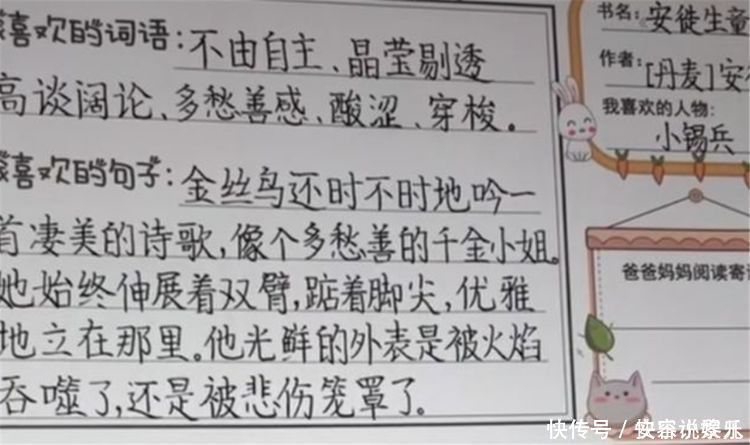 喜欢的词语:不由自主、晶莹剔透
高谈阔论、多愁善感、酸涩、穿梭。
喜欢的句子:金丝鸟还时不时地吟一
首凄美的诗歌,像个多愁善的千金小姐。
她始终伸展着双臂,踮着脚尖,优雅
地立在那里。他光鲜的外表是被火焰
吞噬了,还是被悲伤笼罩了。
书名:安徒生童
作者:[丹麦]安
我喜欢的人物:
小锡兵
爸爸妈妈阅读寄
快传号/